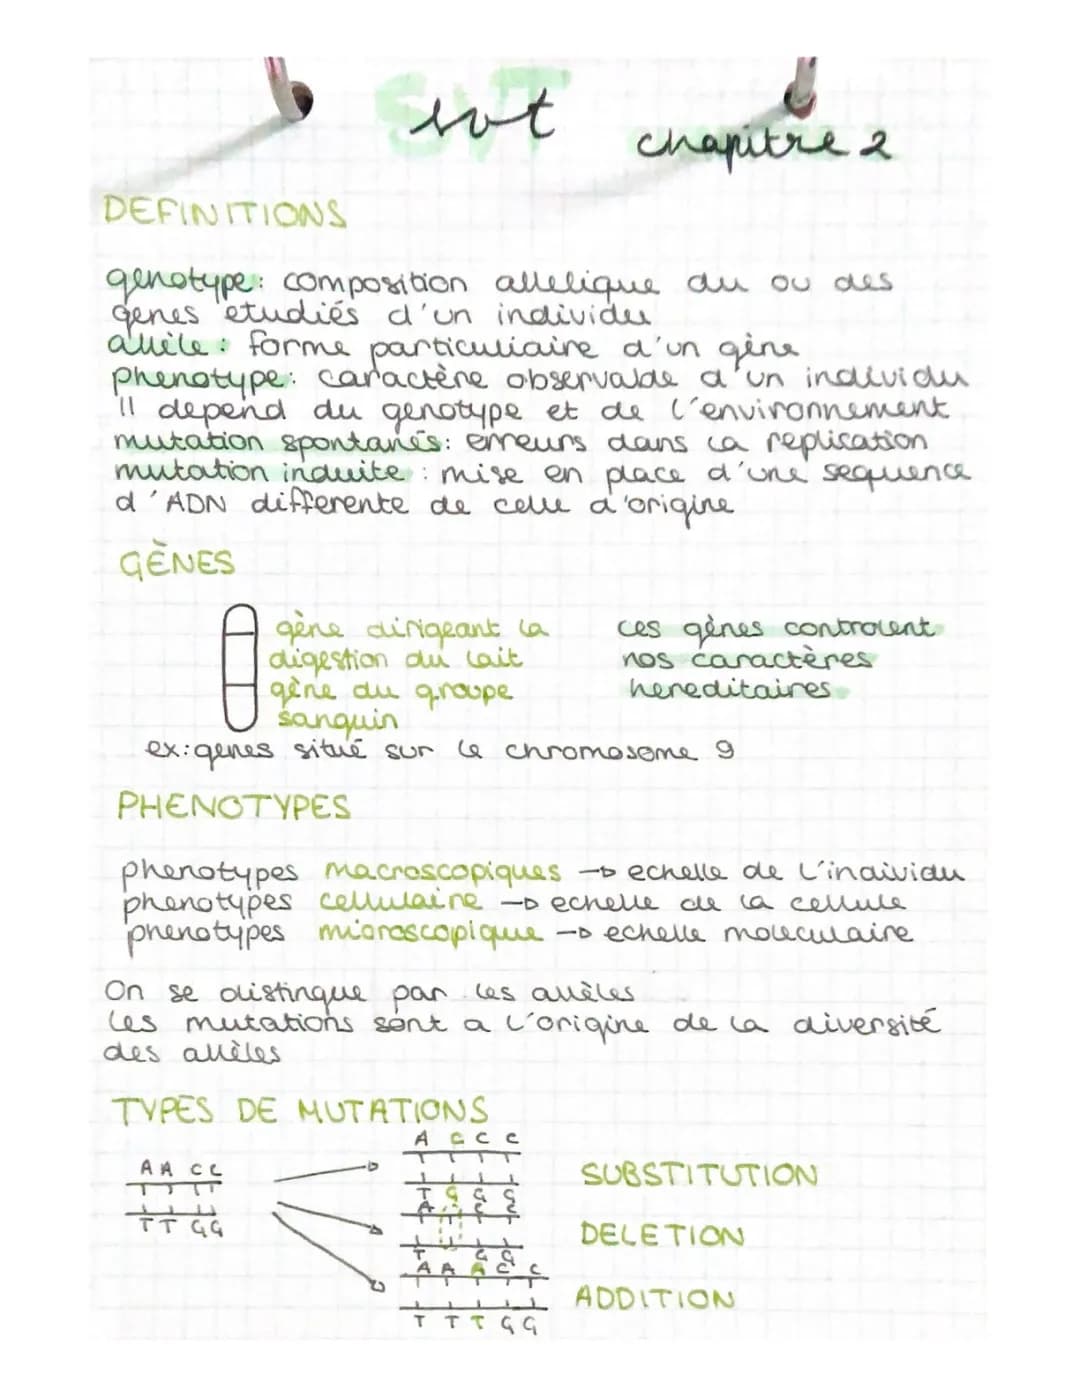 SVT
svt
chapitre 2
DEFINITIONS
genotype: composition allelique du ou des
genes etudiés d'un individu
allèle: forme particuliaire d'un gène
phenotype: caractère observable d'un individu
Il depend du genotype et de l'environnement
mutation spontanés: erreurs dans la replication
mutation induite: mise en place d'une sequence
d'ADN differente de celle d'origine
GÈNES
gène dirigeant la
digestion du lait
gène du groupe
sanguin
ces gènes controlent
nos caractères
hereditaires
ex: genes situé sur le chromosome 9
PHENOTYPES
phenotypes macroscopiques → echelle de l'individu
phenotypes cellulaire → echelle de la cellule
phenotypes microscopique → echelle moleculaire
On se distingue par les allèles
les mutations sont a l'origine de la diversité
des allèles
TYPES DE MUTATIONS
A A C C
T T G G
A C C C
T G G G
SUBSTITUTION
A C C
T G G
DELETION
A A A C C
T T T G G
ADDITION